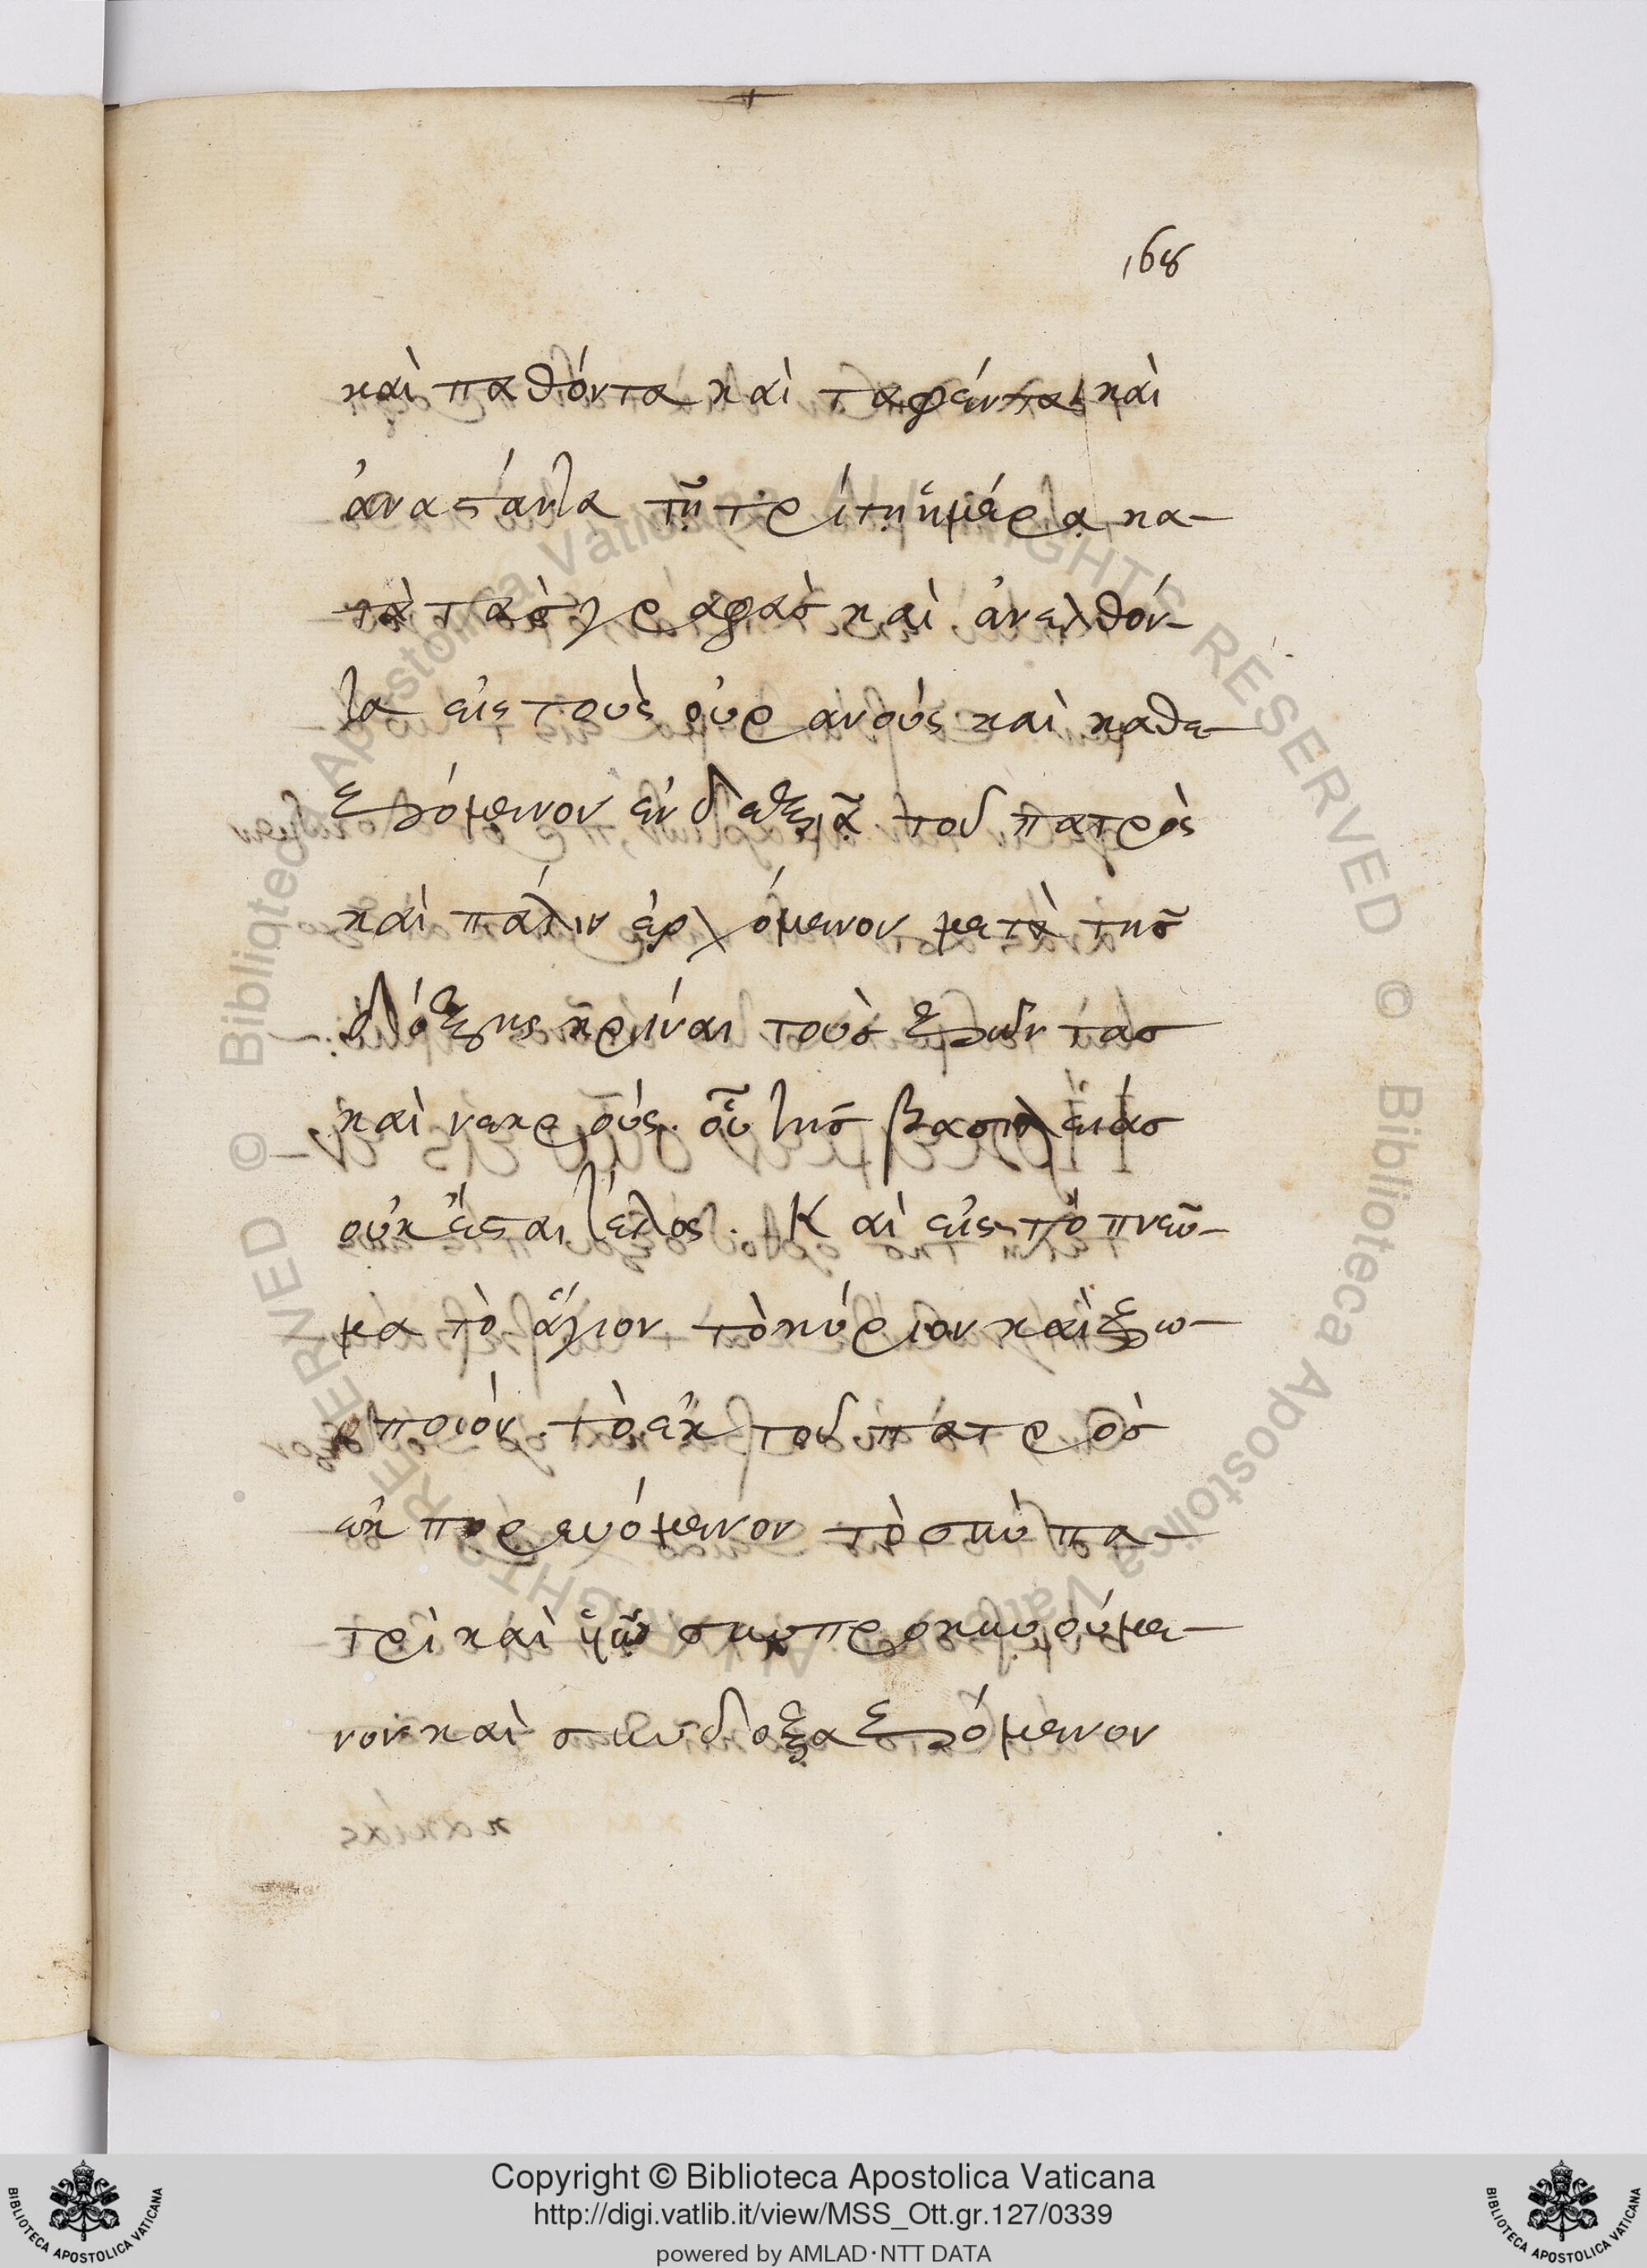 168
καὶ παθόντα καὶ ταφέντα καὶ
ἀναστάντα τῇ τρίτῃ ἡμέρᾳ κα-
τὰ τὰσ γραφὰσ καὶ ἀνελθόν-
τα εἰς τοὺς οὐρανούς καὶ καθε-
ζόμενον ἐν δεξιᾷ τοῦ πατρὸς
καὶ πάλιν ἐρχόμενον μετὰ τῆσ
δόξης κρίναι τοὺσ ζῶντασ
καὶ νεκρούς. οὗ τῆσ βασιλείασ
οὐκ ἔσται τέλος. Καὶ εἰς τὸ πνεῦ-
μα τὸ ἅγιον τὸ κύριον καὶ ζω-
οποιόν. τὸ ἐκ τοῦ πατρὸσ
ἐκπορευόμενον τὸ σὺν πα-
τρὶ καὶ ὑιῷ συνπροσκυνούμε-
νον καὶ συνδοξαζόμενον
Copyright © Biblioteca Apostolica Vaticana
http://digi.vatlib.it/view/MSS_Ott.gr.127/0339
powered by AMLAD·NTT DATA
BIBLIOTECA APOSTOLICA VATICANA
BIBLIOTECA APOSTOLICA VATICANA